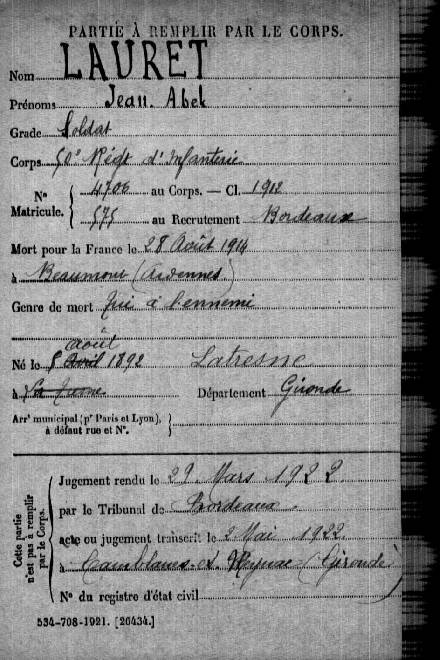 PARTIE À REMPLIR PAR LE CORPS.
Nom LAURET
Prénoms Jean. Abel
Grade Soldat
Corps 50e Régt d'Infanterie
Nº Matricule. { 4706 au Corps. — Cl. 1912
575 au Recrutement Bordeaux
Mort pour la France le 28 Août 1914
à Beaumont (Ardennes)
Genre de mort Tué à l'ennemi
août
Né le 8 Avril 1892 Latresne
à Département Gironde
Arrt municipal (pr Paris et Lyon), à défaut rue et Nº. }
Cette partie n'est pas à remplir par le Corps.
Jugement rendu le 29 Mars 1922
par le Tribunal de Bordeaux.
acte ou jugement transcrit le 2 Mai 1922
à Camblanes-et-Meynac (Gironde)
Nº du registre d'état civil
534-708-1921. [26434.]